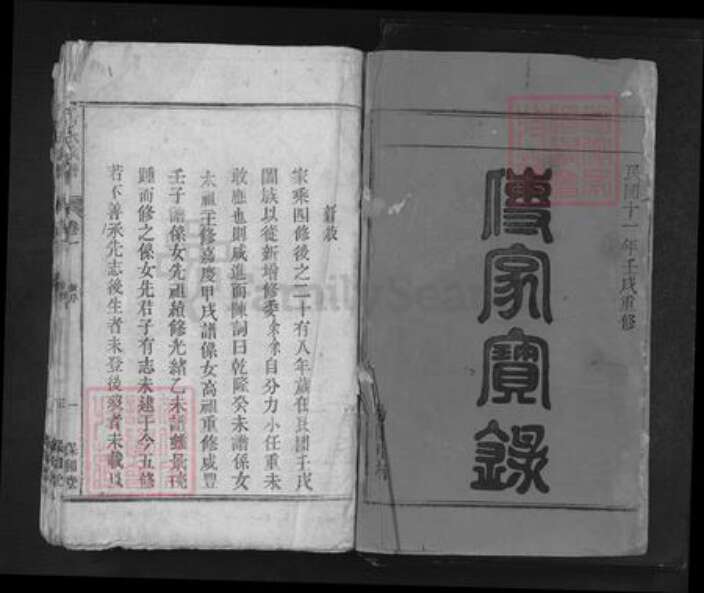 民國十一年壬戌重修
傳家寶錄
新敘
家乘四修後之二十有八年歲在民國壬戌
闔族以從新增修委余余自分力小任重未
敢應也則咸進而陳詞曰乾隆癸未譜係女
太祖主修嘉慶甲戌譜係女高祖重修咸豐
壬子譜係女先祖續修光緒乙未譜
踵而修之係女先君子有志未逮于今五修
若不善承先志後生者未登後歿者未載
卷一
一
保和堂
FamilySearch